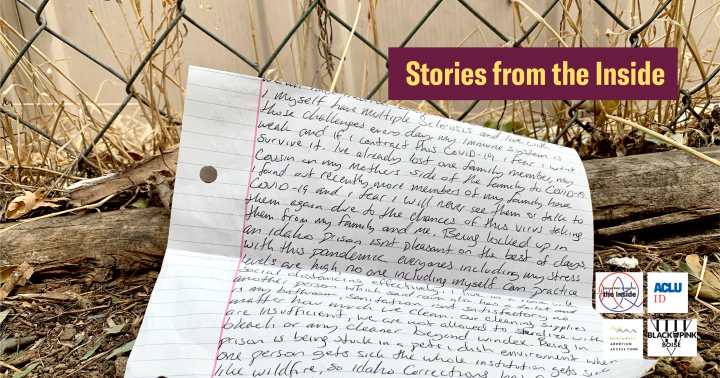 Stories from the Inside
I, myself have multiple Sclerosis and live with
those challenges every day, my immune system is
weak and if I contract this COVID-19 I fear I won't
survive it. I've already lost one family member, my
Cousin on my mothers side of the family to COVID-19.
found out recently, more members of my family have
COVID-19 and I fear I will never see them & talk to
them again due to the chances of this virus taking
them from my family and me. Being locked up in
an Idaho prison isn't pleasant on the best of days.
with this pandemic everyones including my stress
levels are high no one including myself can practice
Social distancing effectively. I live in a
another person which said room also has a toilet and
my bathroom sanitation is satisfactory
matter how much we clean. Our cleaning supplies
are insufficient, we are not allowed to with
bleach or any cleaner beyond windex. Being in
prison is being stuck in a petri dish environment when
one person gets sick the whole institution gets sick
like wildfire, so Idaho Corrections has
the Inside
ACLU
ID
NORTHWEST
ABORTION
ACCESS FUND
BLACK & PINK
BOISE